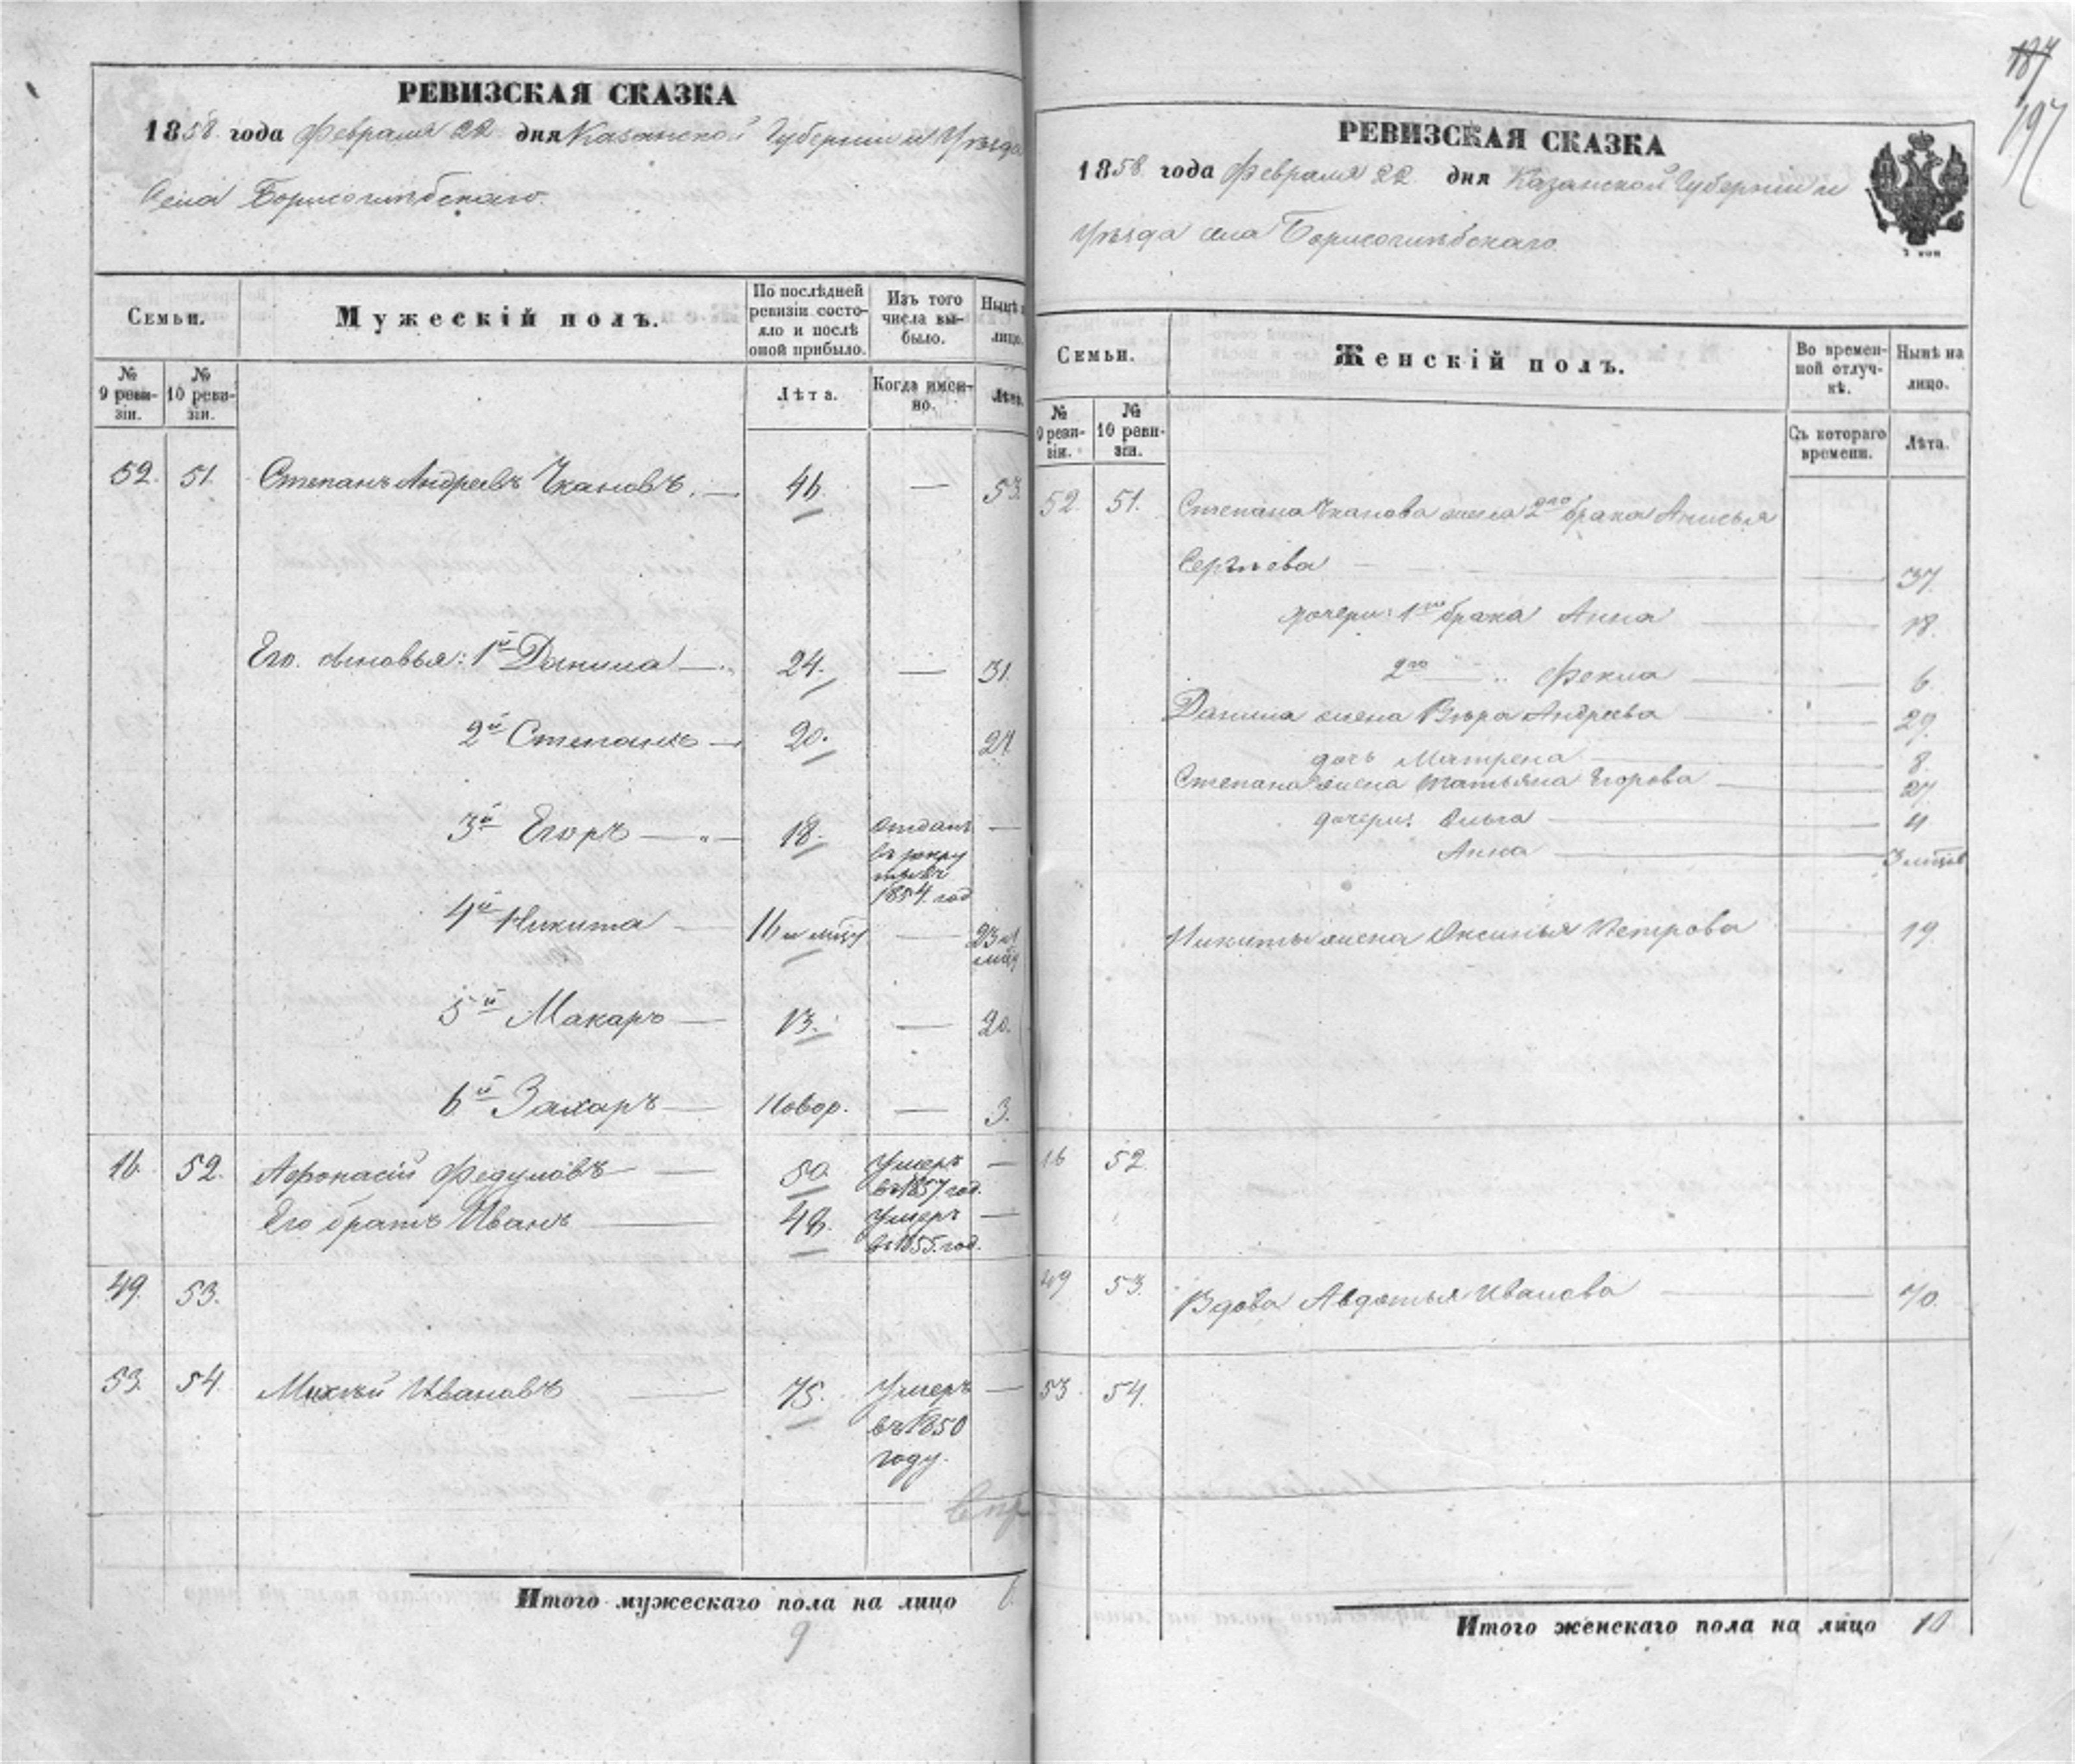 187
197
РЕВИЗСКАЯ СКАЗКА
1858 года Февраля 22 дня Казанской Губернии и Уѣзда
Села Борисоглѣбскаго.
Семьи.
Мужескій полъ.
По послѣдней ревизіи состояло и послѣ оной прибыло.
Изъ того числа выбыло.
Нынѣ
лицо.
№ 9 ревизіи.
№ 10 ревизіи.
Лѣта.
Когда именно.
Лѣта.
52. 51. Степанъ Андреевъ Чкановъ. — 46. — 53.
Его сыновья: 1й Данила — 24. — 31.
2й Степанъ — 20. 27.
3й Егоръ — 18. отданъ въ рекруты въ 1854. год —
4й Никита — 16 — 23
5й Макаръ — 13. — 20.
6й Захаръ — Новор. — 3.
16. 52. Афонасій Федуловъ — 50. Умеръ въ 1857 год. —
Его братъ Иванъ — 48. Умеръ въ 1855. год. —
49. 53.
53. 54. Михѣй Ивановъ — 75. Умеръ въ 1850 году. —
Итого мужескаго пола на лицо 6.
9
РЕВИЗСКАЯ СКАЗКА
1858 года Февраля 22. дня Казанской Губерніи и
Уѣзда села Борисоглѣбскаго.
Семьи.
Женскій полъ.
Во временной отлучкѣ.
Нынѣ на лицо.
№ 9 ревизіи.
№ 10 ревизіи.
Съ котораго времени.
Лѣта.
52. 51. Степана Чканова жена 2го брака Анисья
Сергѣева — — 37.
дочери: 1го брака Анна — — 18.
2го — " Фекла — — 6
Данила жена Вѣра Андреева — — 29.
дочь Матрена — — 8.
Степана жена Татьяна Егорова — — 27
дочери: Ольга — — 4
Анна — — 3
Никиты жена Оксинья Петрова — 19.
16 52.
49 53. Вдова Авдотья Иванова — — 70.
53 54.
Итого женскаго пола на лицо 10